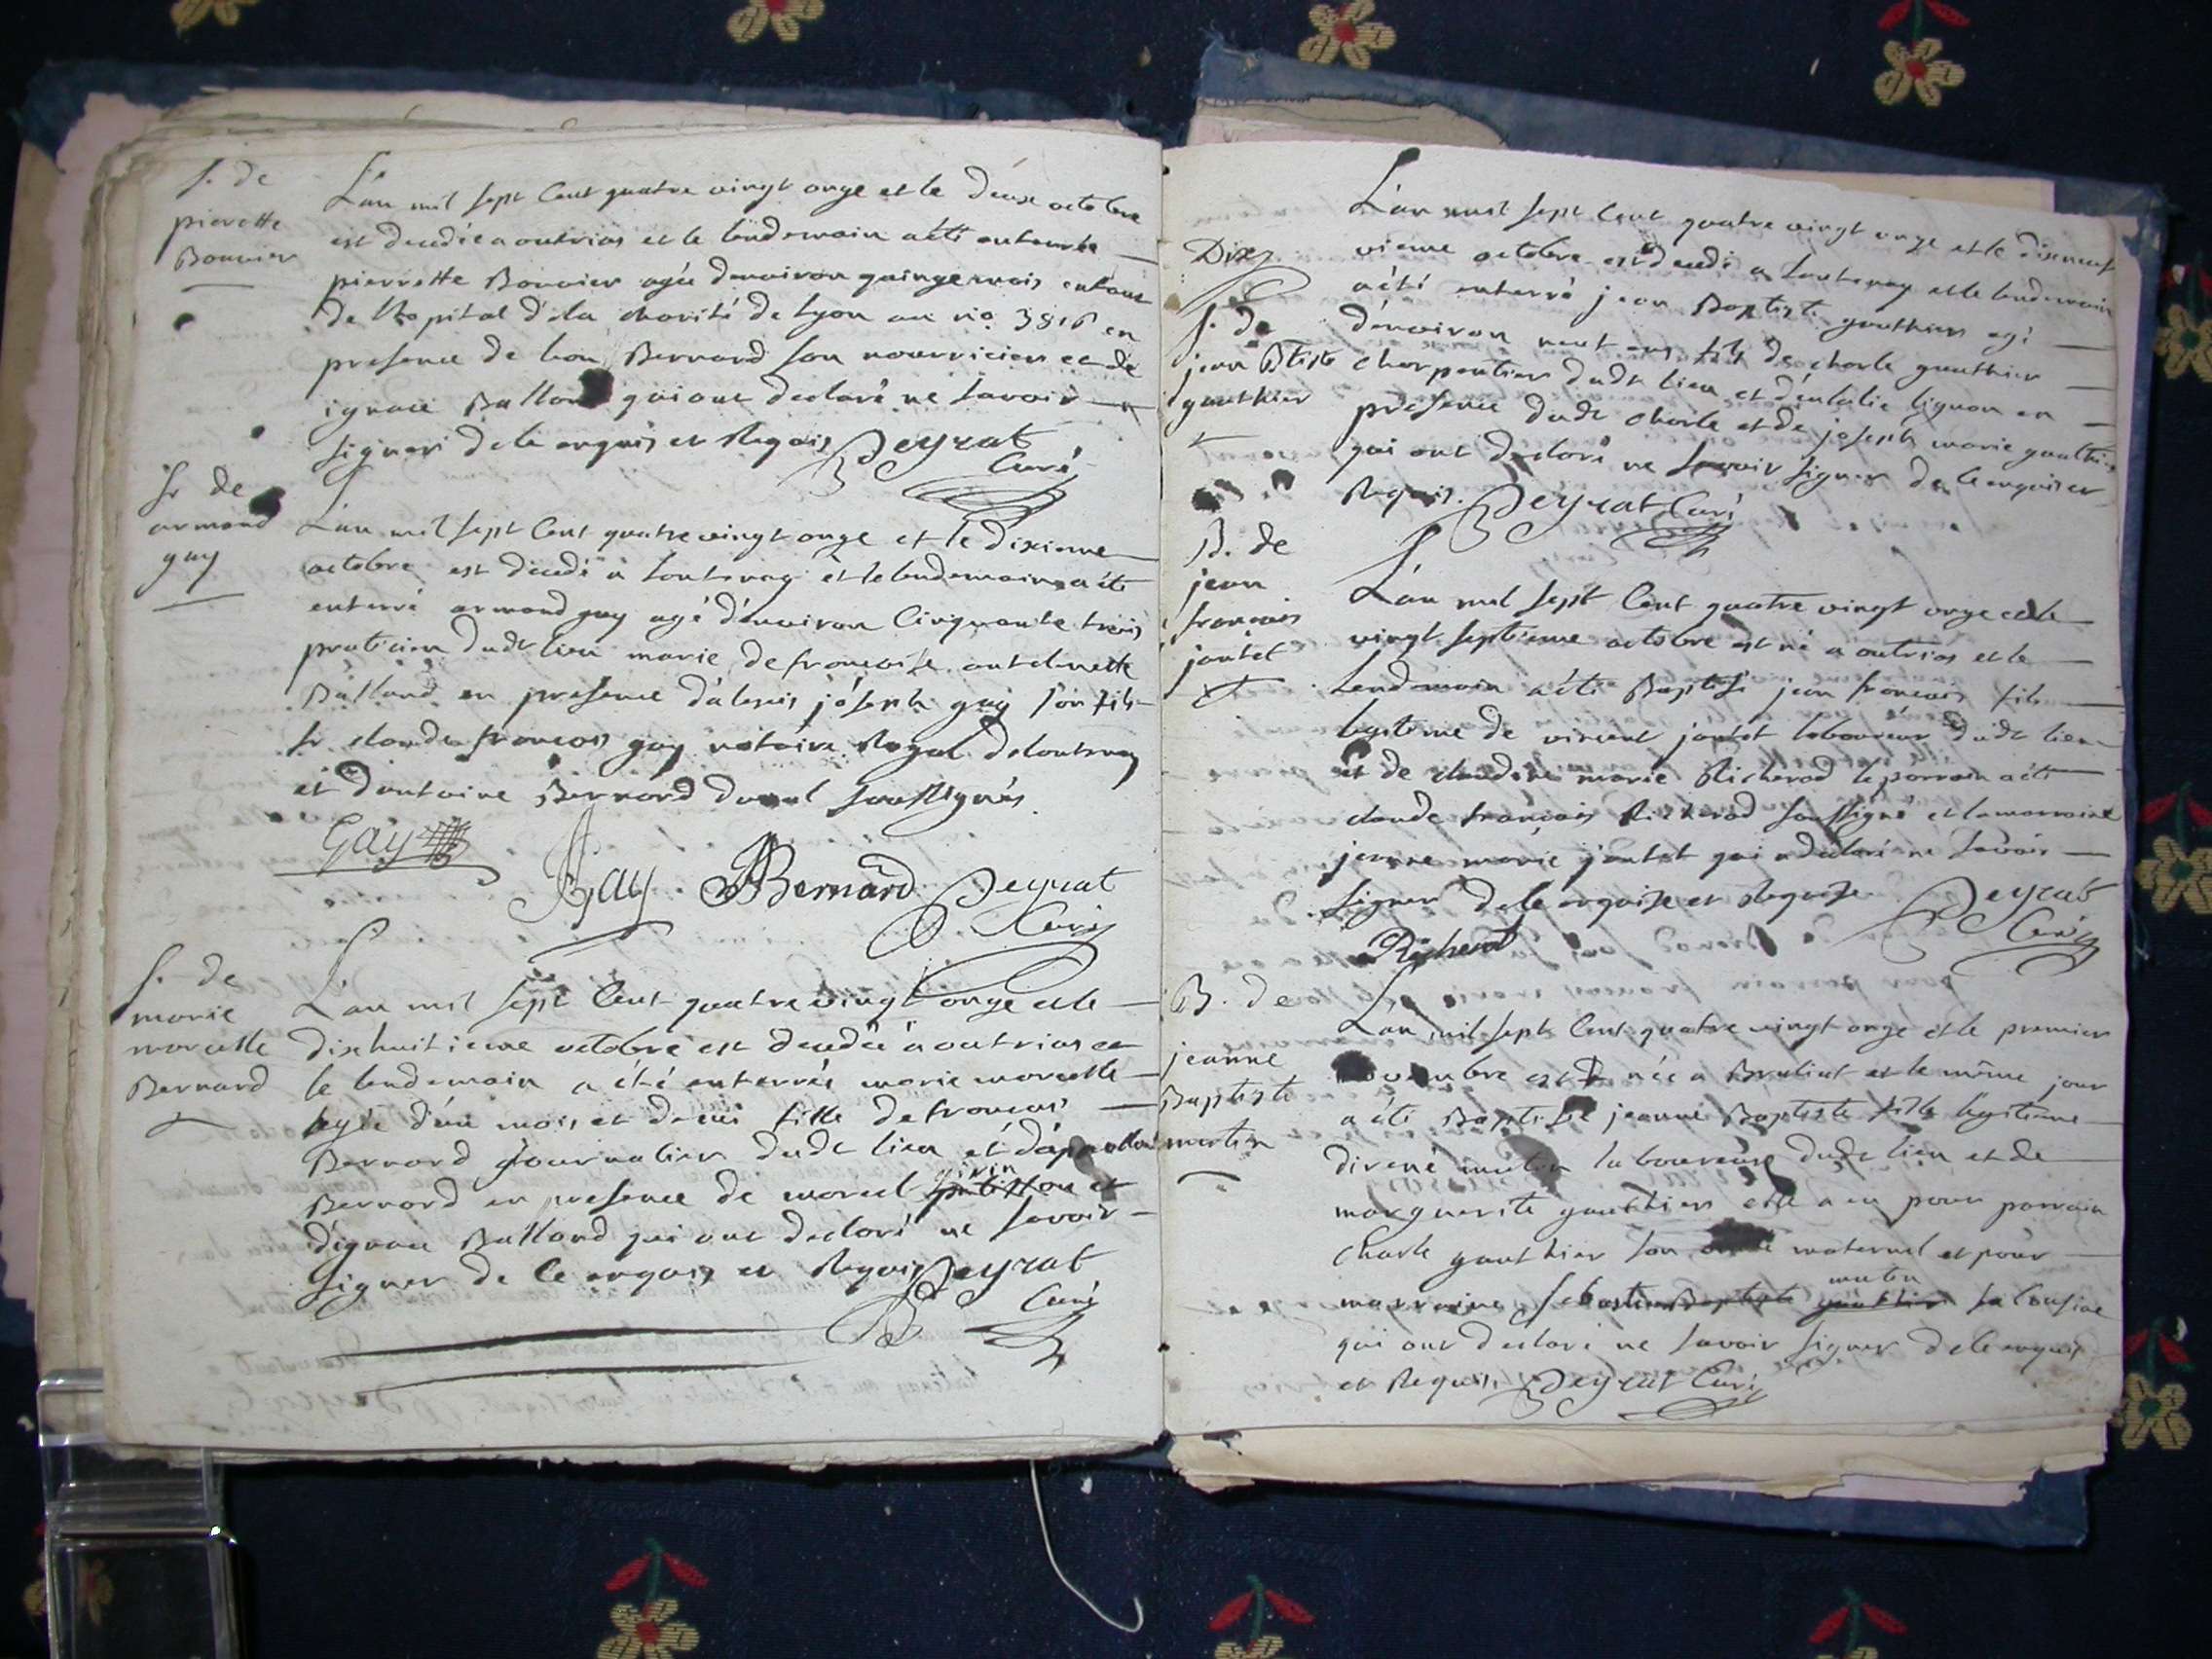 S. de
pierette
Bouvier
L'an mil sept Cent quatre vingt onze et le deux octobre
est decedée a outrias et le lendemain a été enterrée
pierrette Bouvier agée d'environ quinze mois enfant
de l'hopital de la charité de Lyon au no. 3816 en
presence de Bernard son nourricier et de
ignace Balland qui ont declaré ne savoir
signer de ce enquis et Requis Peyrat
Curé
Sr de
armand
guy
L'an mil sept Cent quatre vingt onze et le dixieme
octobre est decedé a Lantenay et le lendemain a été
enterré armand guy agé d'environ Cinquante trois
praticien dudt lieu marié de francoise
Balland en presence d'alexis joseph guy son fils
sr claude francois guy notaire Royal de Lantenay
et d'antoine Bernard soussignés
Gay
Gay Bernard Peyrat
Curé
S. de
marie
marcelle
Bernard
L'an mil sept Cent quatre vingt onze et le
dixhuitieme octobre est decedée a outrias et
le lendemain a été enterrée marie marcelle
agée d'un mois et demi fille de francois
Bernard journalier dudt lieu et
Bernard en presence de marcel et
d'ignace Balland qui ont declaré ne savoir
signer de ce enquis et Requis Peyrat
Curé
Dix
S. de
jean Btiste
gauthier
L'an mil sept Cent quatre vingt onze et le dixneuf
vieme octobre est decedé a Lantenay et le lendemain
a été enterré jean Baptiste gauthier agé
d'environ neuf ans fils de charle gauthier
charpentier dudt lieu et d'eulalie lignon en
presence dudt charle et de joseph marie gauthier
qui ont declaré ne savoir signer de ce enquis et
Requis. Peyrat Curé
B. de
jean
francois
jantet
L'an mil sept Cent quatre vingt onze et le
vingt septieme octobre est né a outrias et le
Lendemain a été Baptisé jean francois fils
legitime de vincent jantet laboureur dudt lieu
et de claudine marie Richerod le parrain a été
claude francois Richerod soussigné et la marraine
jeanne marie jantet qui a declaré ne savoir
signer de ce enquise et Requise Peyrat
Curé
Richerod
B. de
jeanne
Baptiste
martin
L'an mil sept Cent quatre vingt onze et le premier
novembre est née a Brulliat et le même jour
a été Baptisé jeanne Baptiste fille legitime
direné laboureur dudt lieu et de
marguerite gauthier elle a eu pour parrain
Charle gauthier son maternel et pour
marraine sa Cousine
qui ont declaré ne savoir signer de ce enquis
et Requis. Peyrat Curé